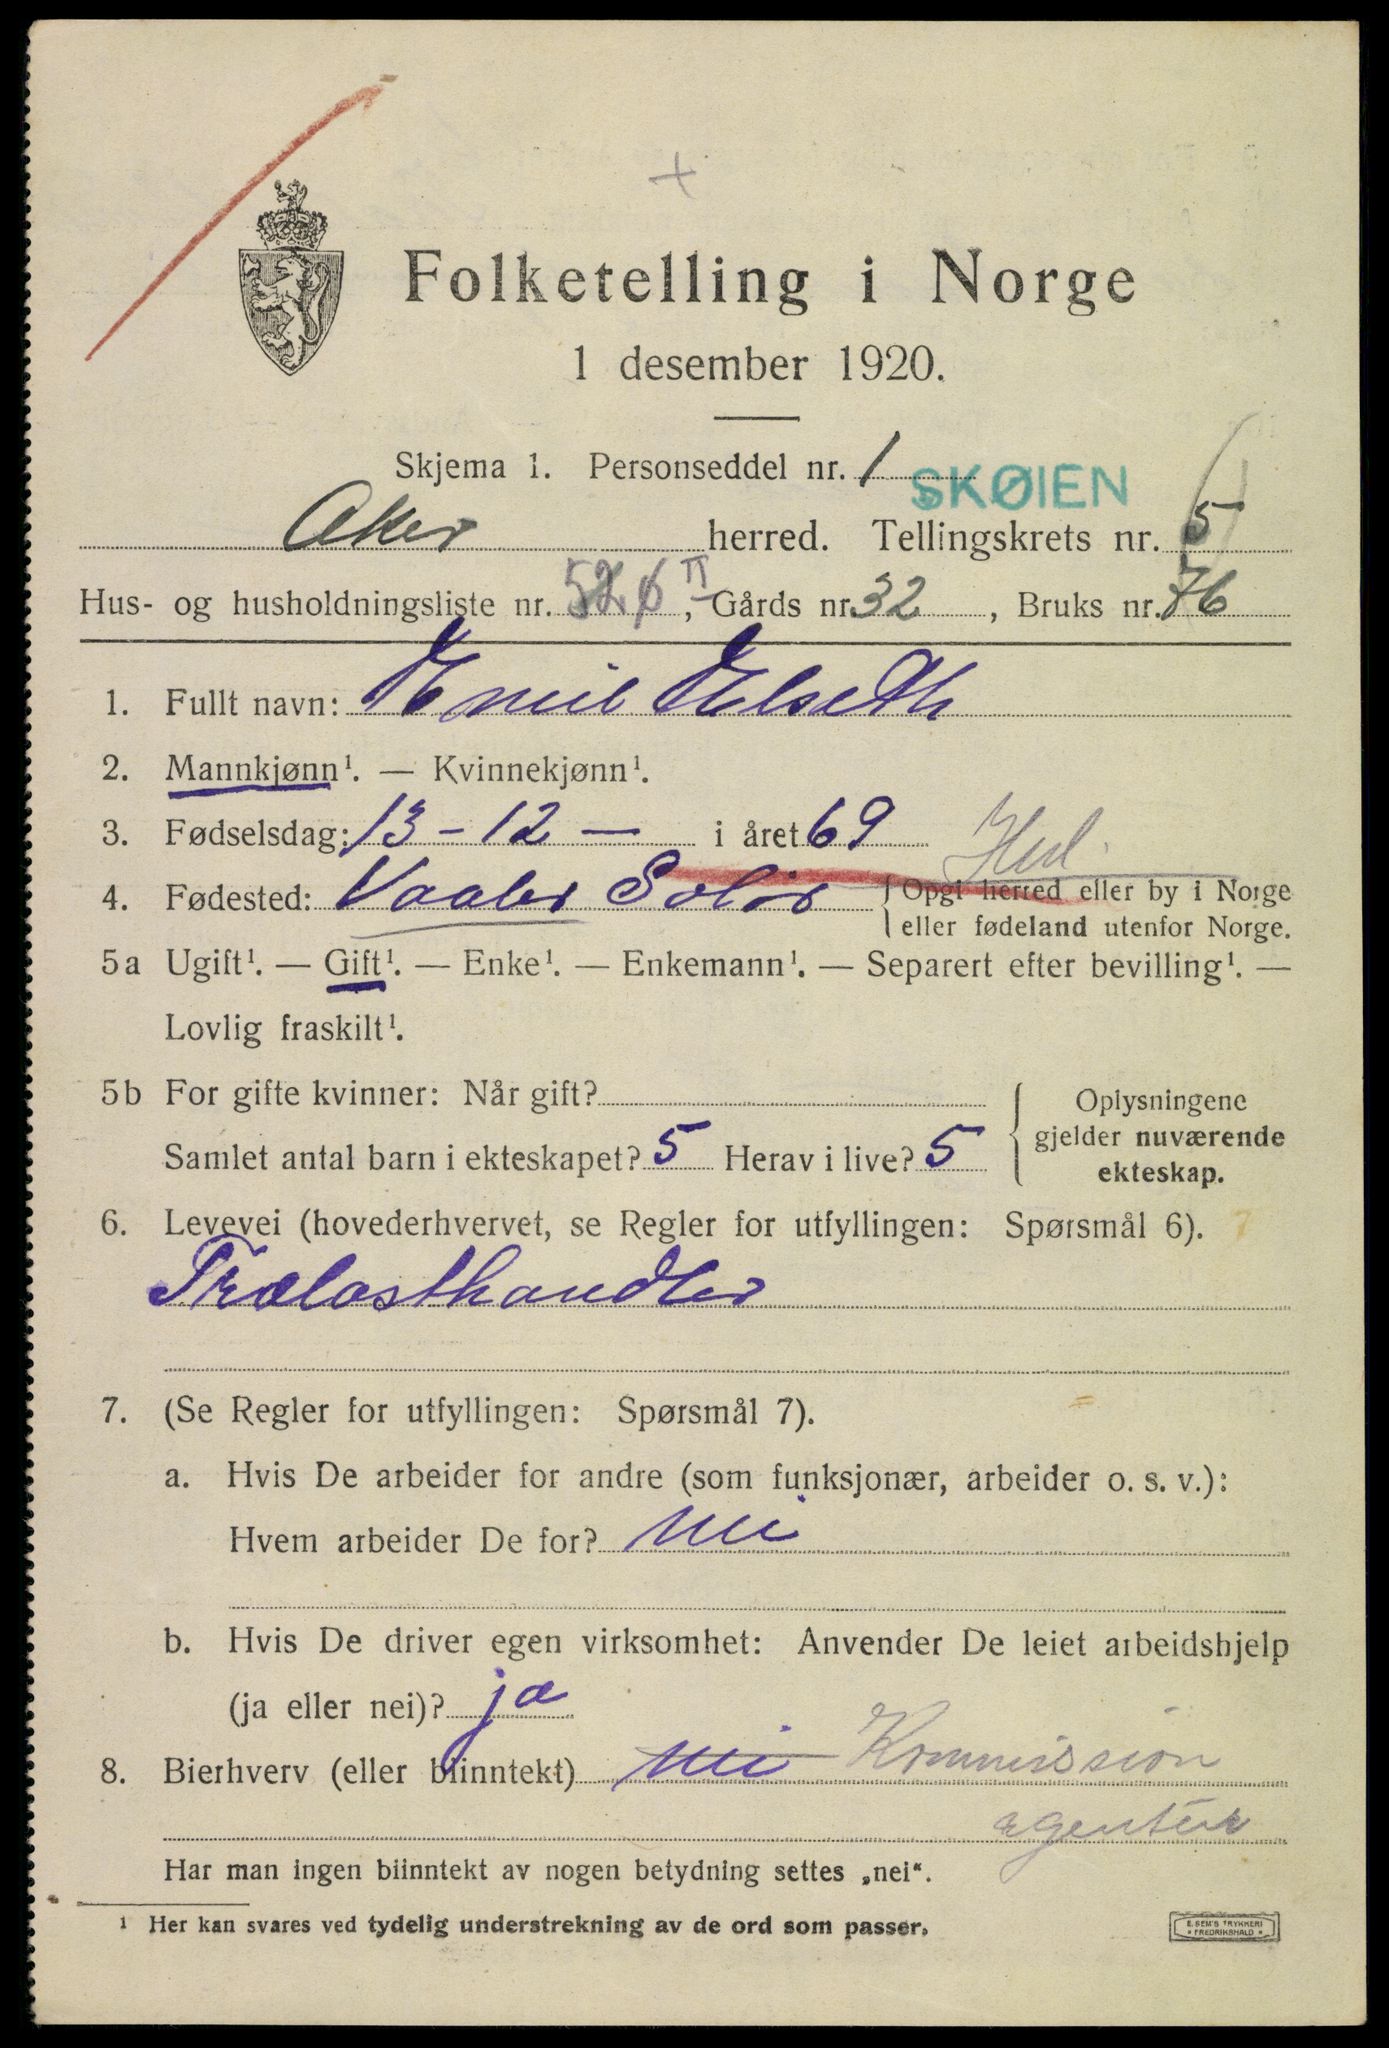 Folketelling i Norge
1 desember 1920.
Skjema 1. Personseddel nr. 1
SKØIEN
Aker herred. Tellingskrets nr. 5
Hus- og husholdningsliste nr. II, Gårds nr. 32, Bruks nr. 76
1. Fullt navn: Emil Elseth
2. Mannkjønn¹. — Kvinnekjønn¹.
3. Fødselsdag: 13 - 12 — i året 69
Hed.
4. Fødested: Vaaler Solør { Opgi herred eller by i Norge
eller fødeland utenfor Norge.
5a Ugift¹. — Gift¹. — Enke¹. — Enkemann¹. — Separert efter bevilling¹. —
Lovlig fraskilt¹.
5b For gifte kvinner: Når gift?
Samlet antal barn i ekteskapet? 5 Herav i live? 5
Oplysningene
gjelder nuværende
ekteskap.
6. Levevei (hovederhvervet, se Regler for utfyllingen: Spørsmål 6). 7
Trælasthandler
7. (Se Regler for utfyllingen: Spørsmål 7).
a. Hvis De arbeider for andre (som funksjonær, arbeider o. s. v.):
Hvem arbeider De for? nei
b. Hvis De driver egen virksomhet: Anvender De leiet arbeidshjelp
(ja eller nei)? ja
8. Bierhverv (eller biinntekt) nei Kommission
agentur
Har man ingen biinntekt av nogen betydning settes „nei“.
¹ Her kan svares ved tydelig understrekning av de ord som passer.
E. SEM'S TRYKKERI
* FREDRIKSHALD *